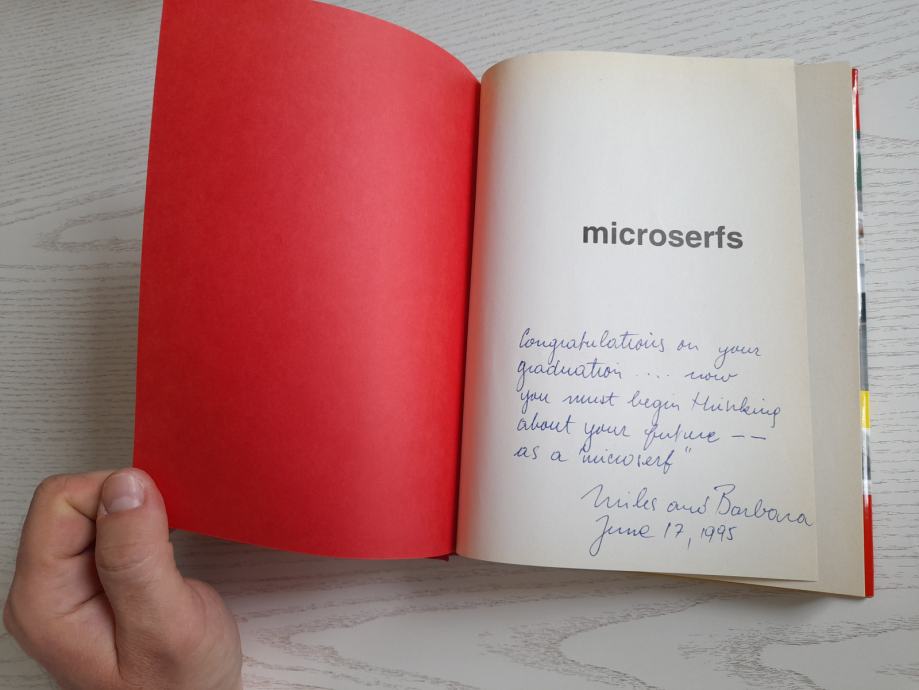 microserfs
Congratulations on your
graduation .... now
you must begin thinking
about your future --
as a "microserf"
Miles and Barbara
June 17, 1995